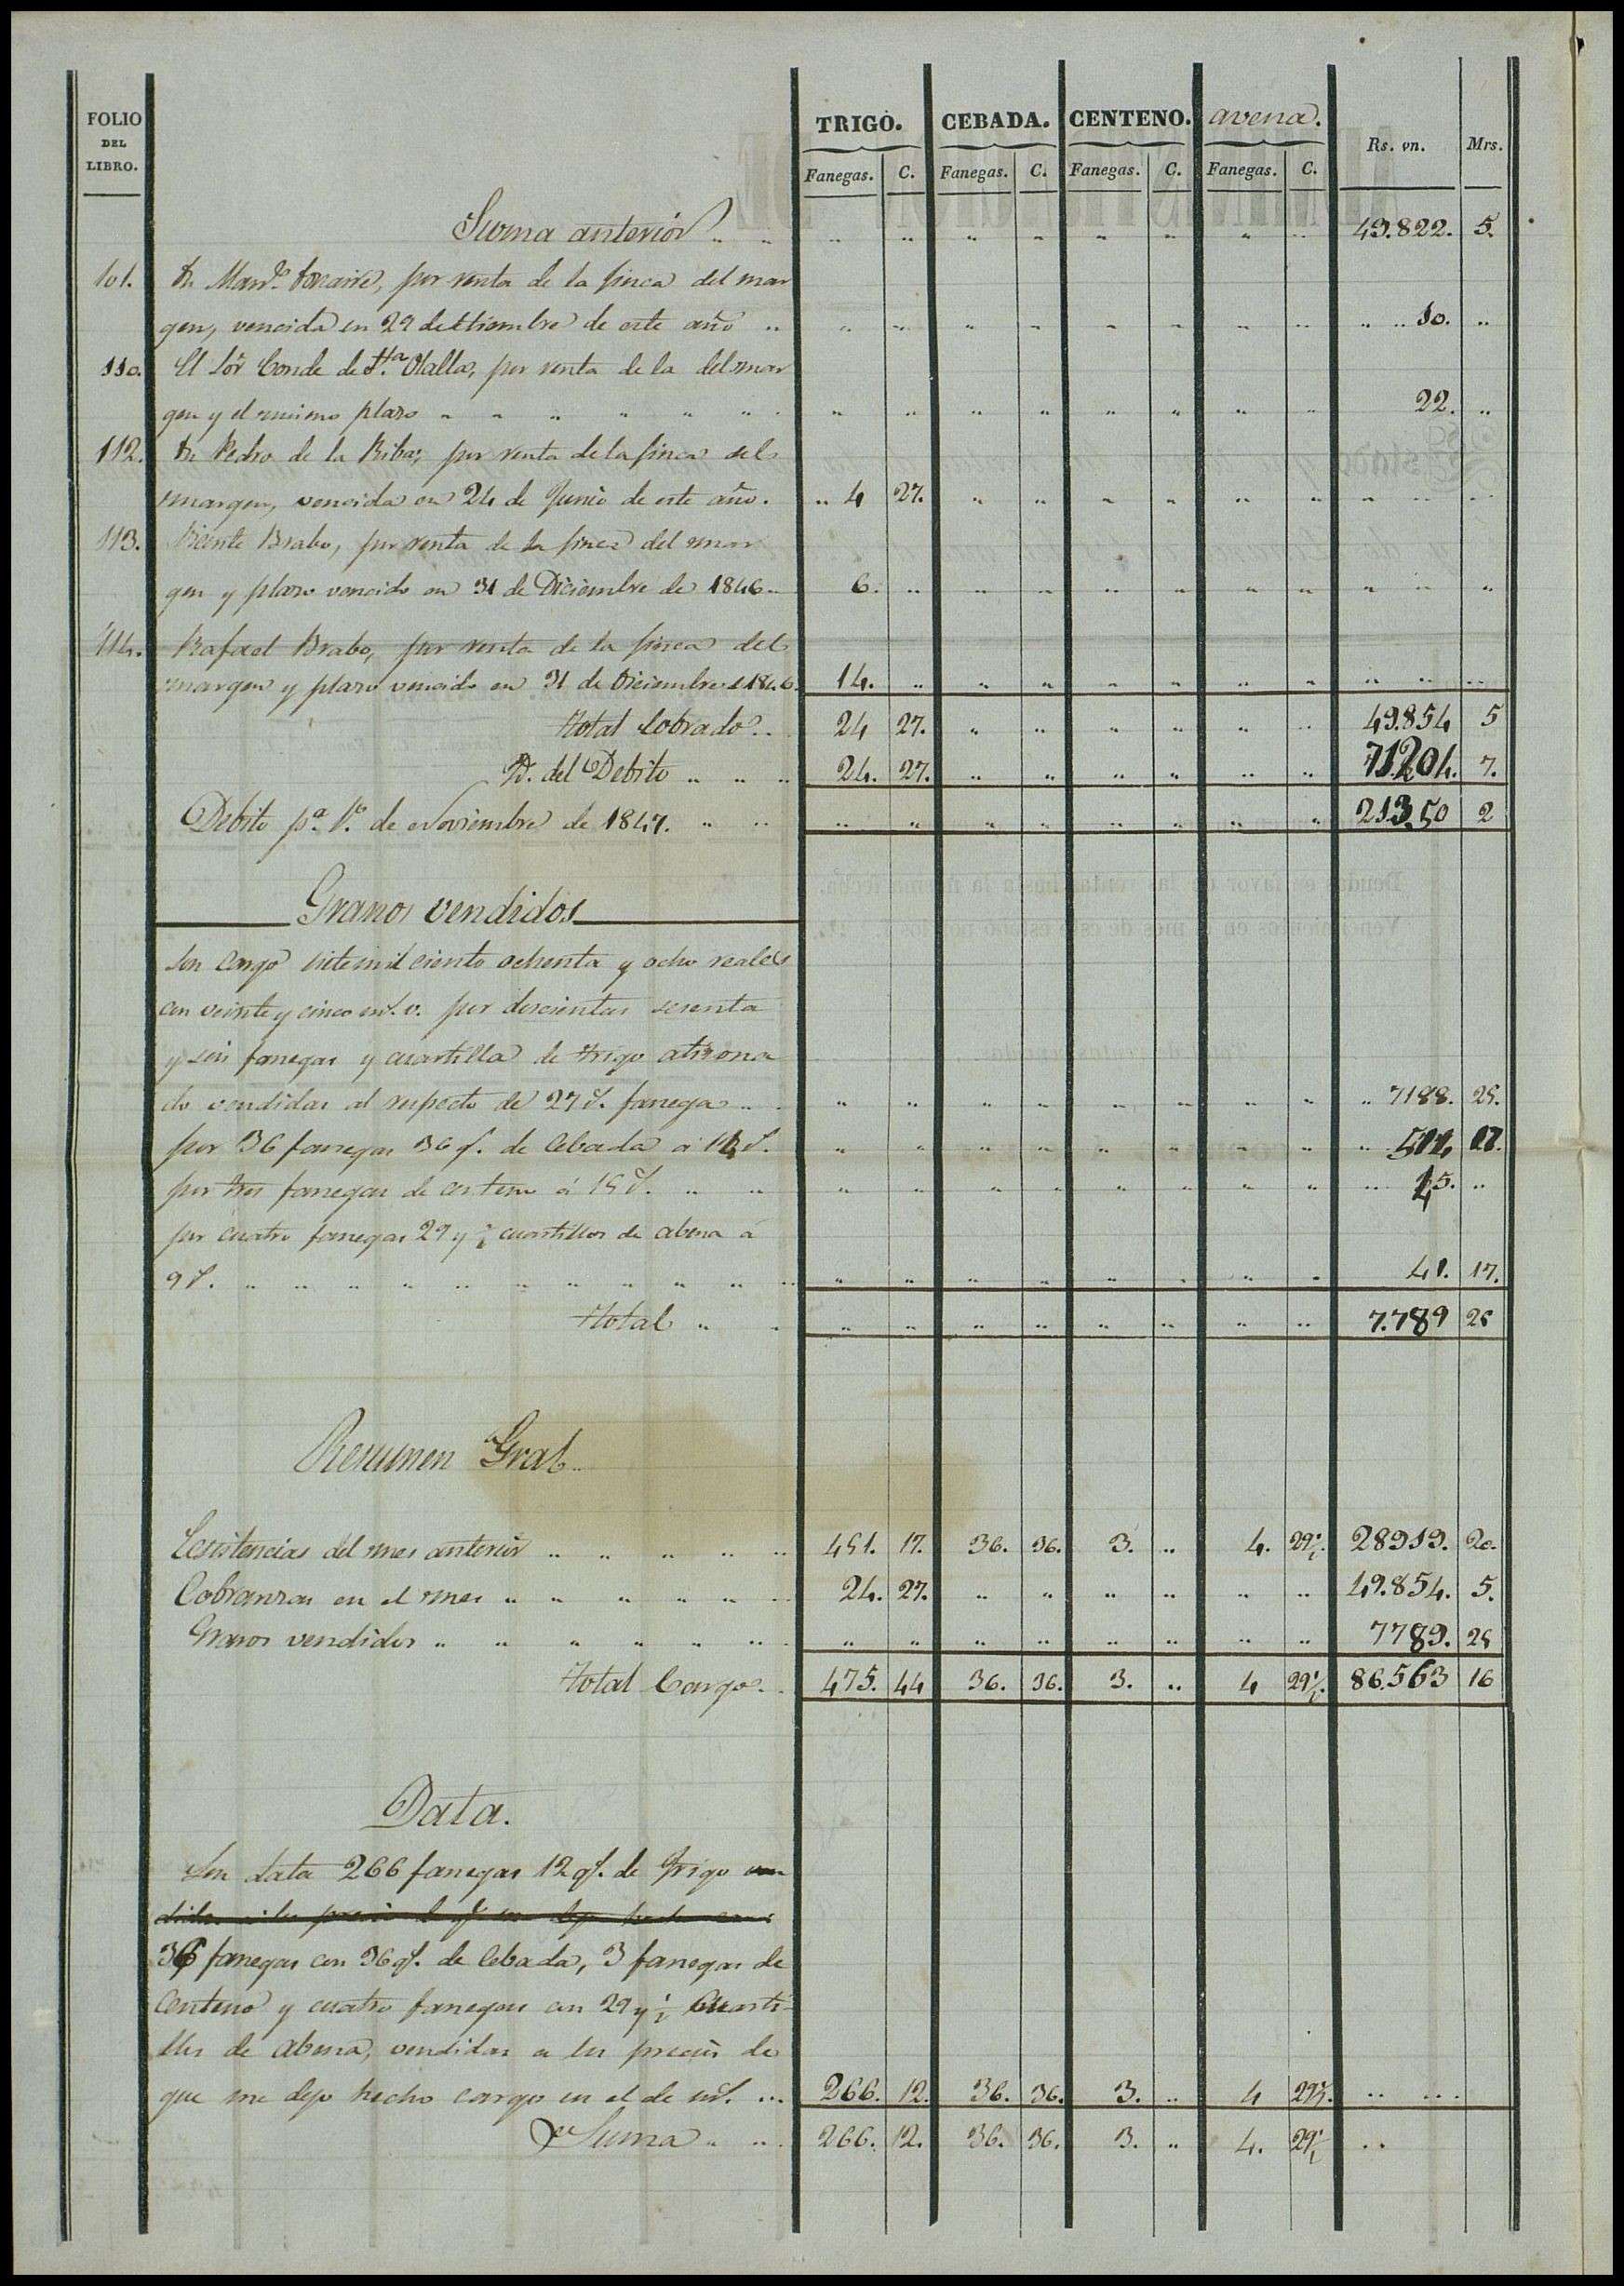 FOLIO DEL LIBRO. TRIGO. CEBADA. CENTENO. avena. Rs. vn. Mrs.
Fanegas. C. Fanegas. C. Fanegas. C. Fanegas. C.
Suma anterior 49.822. 5.
101. Dn Man.l por renta de la finca del mar
gen, vencida en 29 de Stiembre de este año 10.
110. El Sor Conde de Sta. Olalla, por renta de la del mar
gen y el mismo plazo 22.
112. Dn Pedro de la Riba, por renta de la finca del
margen, vencida en 24 de Junio de este año. 4 27.
113. Vicente Brabo, por renta de la finca del mar
gen y plazo vencido en 31 de Diciembre de 1846 6.
114. Rafael Brabo, por renta de la finca del
margen y plazo vencido en 31 de Diciembre d 1846. 14.
Total Cobrado 24 27. 49.854 5
Yd. del Debito 24. 27. 71204. 7.
Debito pa. 1o. de Noviembre de 1847. 213.50 2
Granos vendidos
Son cargo siete mil ciento ochenta y ocho reales
con veinte y cinco ms. v. por doscientas sesenta
y seis fanegas y cuartilla de trigo atizona
do vendidas al respecto de 27 rs. fanega 7188. 25.
por 36 fanegas 36 qs. de Cebada a 14 rs. 514 17.
por tres fanegas de centeno á 15 rs. 45.
por cuatro fanegas 29 y ½ cuartillos de abena a
9 rs. 41. 17.
Total 7.789 25
Resumen Gral
Ecsistencias del mes anterior 451. 17. 36. 36. 3. 4. 29½. 28919. 20.
Cobranzas en el mes 24. 27. 49.854. 5.
Granos vendidos 7789. 25
Total Cargo. 475. 44 36. 36. 3. 4 29½. 86.563 16
Data.
Son data 266 fanegas 12 qs. de Trigo
36 fanegas con 36 qs. de Cebada, 3 fanegas de
Centeno y cuatro fanegas con 29 y ½ Cuarti-
llos de Abena, vendidas a los precios de
que me dejo hecho cargo en el de ms. 266. 12. 36. 36. 3. 4 29½.
Suma 266. 12. 36. 36. 3. 4. 29½